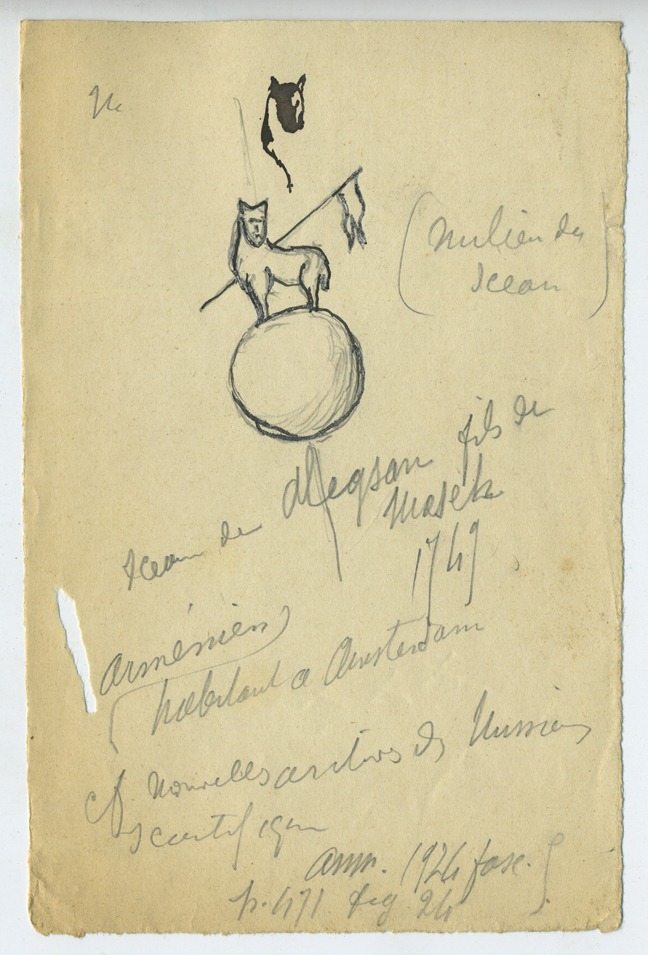 (milieu du
sceau)
sceau de Aleqsan fils de
Masekh
1749
arménien)
(habitant a Amsterdam
cf nouvelles archives des Missions
scientifiques
ann. 1924 fasc.
p. 471 fig 24